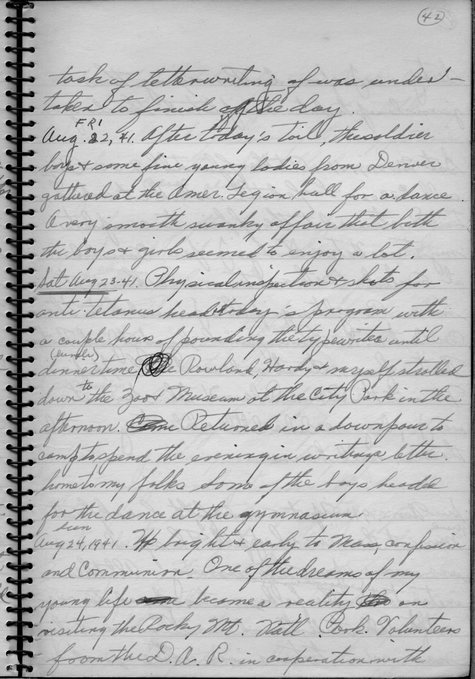 42
task of letter writing of was under-
taken to finish off the day.
FRI
Aug. 22, 41. After today's toil, the soldier
boys & some fine young ladies from Denver
gathered at the Amer. Legion hall for a dance.
A very smooth swanky affair that both
the boys & girls seemed to enjoy a lot.
Sat Aug 23-41. Physical inspection & shots for
anti tetanus head today's program with
a couple hours of pounding the typewriter until
dinner time (lunch) Rowland, Hardy & myself strolled
down to the Zoo & Museum at the City Park in the
afternoon. Returned in a downpour to
camp to spend the evening in writing a letter
home to my folks. Some of the boys headed
for the dance at the gymnasium.
Sun
Aug 24, 1941. Up bright & early to Mass, confession
and Communion. One of the dreams of my
young life became a reality on
visiting the Rocky Mt. Natl. Park. Volunteers
from the D.A.R. in cooperation with